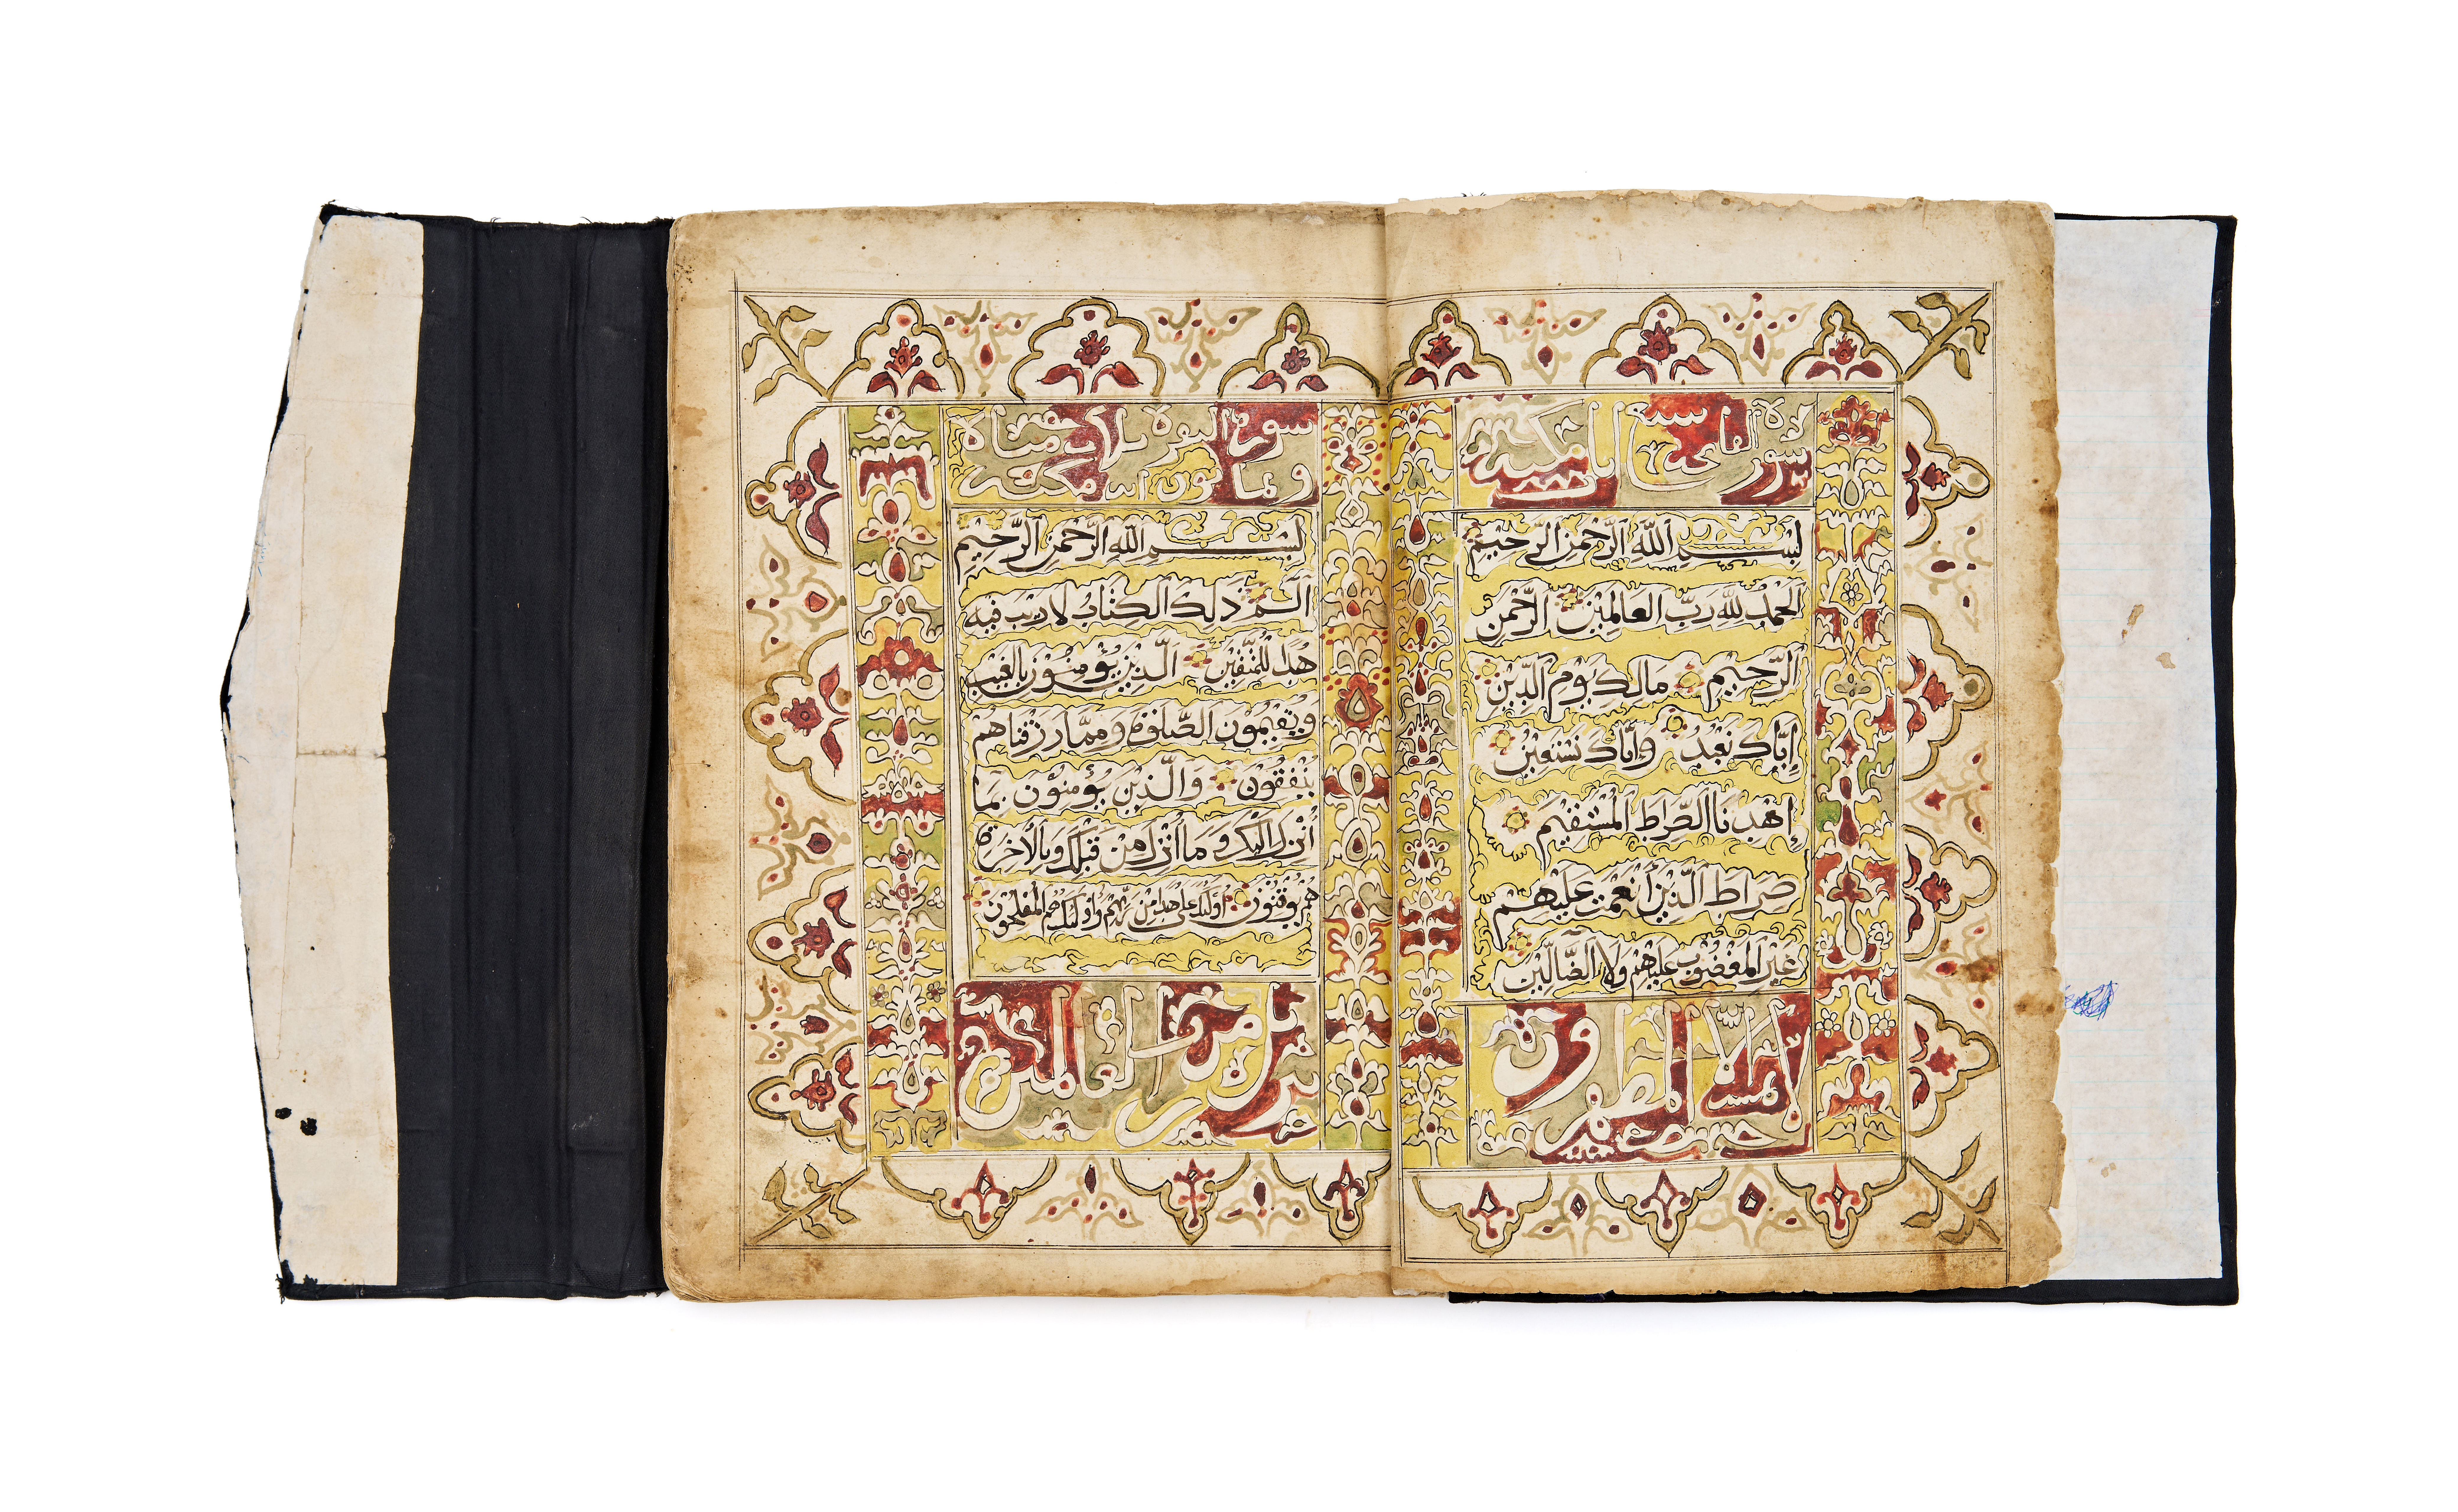 سورة الفاتحة
بِسْمِ اللّٰهِ الرَّحْمٰنِ الرَّحِيْمِ
اَلْحَمْدُ لِلّٰهِ رَبِّ الْعَالَمِيْنَ الرَّحْمٰنِ
الرَّحِيْمِ مَالِكِ يَوْمِ الدِّيْنِ
إِيَّاكَ نَعْبُدُ وَإِيَّاكَ نَسْتَعِيْنُ
إِهْدِنَا الصِّرَاطَ الْمُسْتَقِيْمَ
صِرَاطَ الَّذِيْنَ أَنْعَمْتَ عَلَيْهِمْ
غَيْرِ الْمَغْضُوْبِ عَلَيْهِمْ وَلَا الضَّالِّيْنَ
لا يمسه الا المطهرون
سورة البقرة
بِسْمِ اللّٰهِ الرَّحْمٰنِ الرَّحِيْمِ
الٓمٓ ذٰلِكَ الْكِتَابُ لَا رَيْبَ فِيْهِ
هُدًى لِلْمُتَّقِيْنَ الَّذِيْنَ يُؤْمِنُوْنَ بِالْغَيْبِ
وَيُقِيْمُوْنَ الصَّلٰوةَ وَمِمَّا رَزَقْنَاهُمْ
يُنْفِقُوْنَ وَالَّذِيْنَ يُؤْمِنُوْنَ بِمَا
أُنْزِلَ إِلَيْكَ وَمَا أُنْزِلَ مِنْ قَبْلِكَ وَبِالْأٰخِرَةِ
هُمْ يُوْقِنُوْنَ أُولٰئِكَ عَلٰى هُدًى مِنْ رَبِّهِمْ وَأُولٰئِكَ هُمُ الْمُفْلِحُوْنَ
تنزيل من رب العالمين